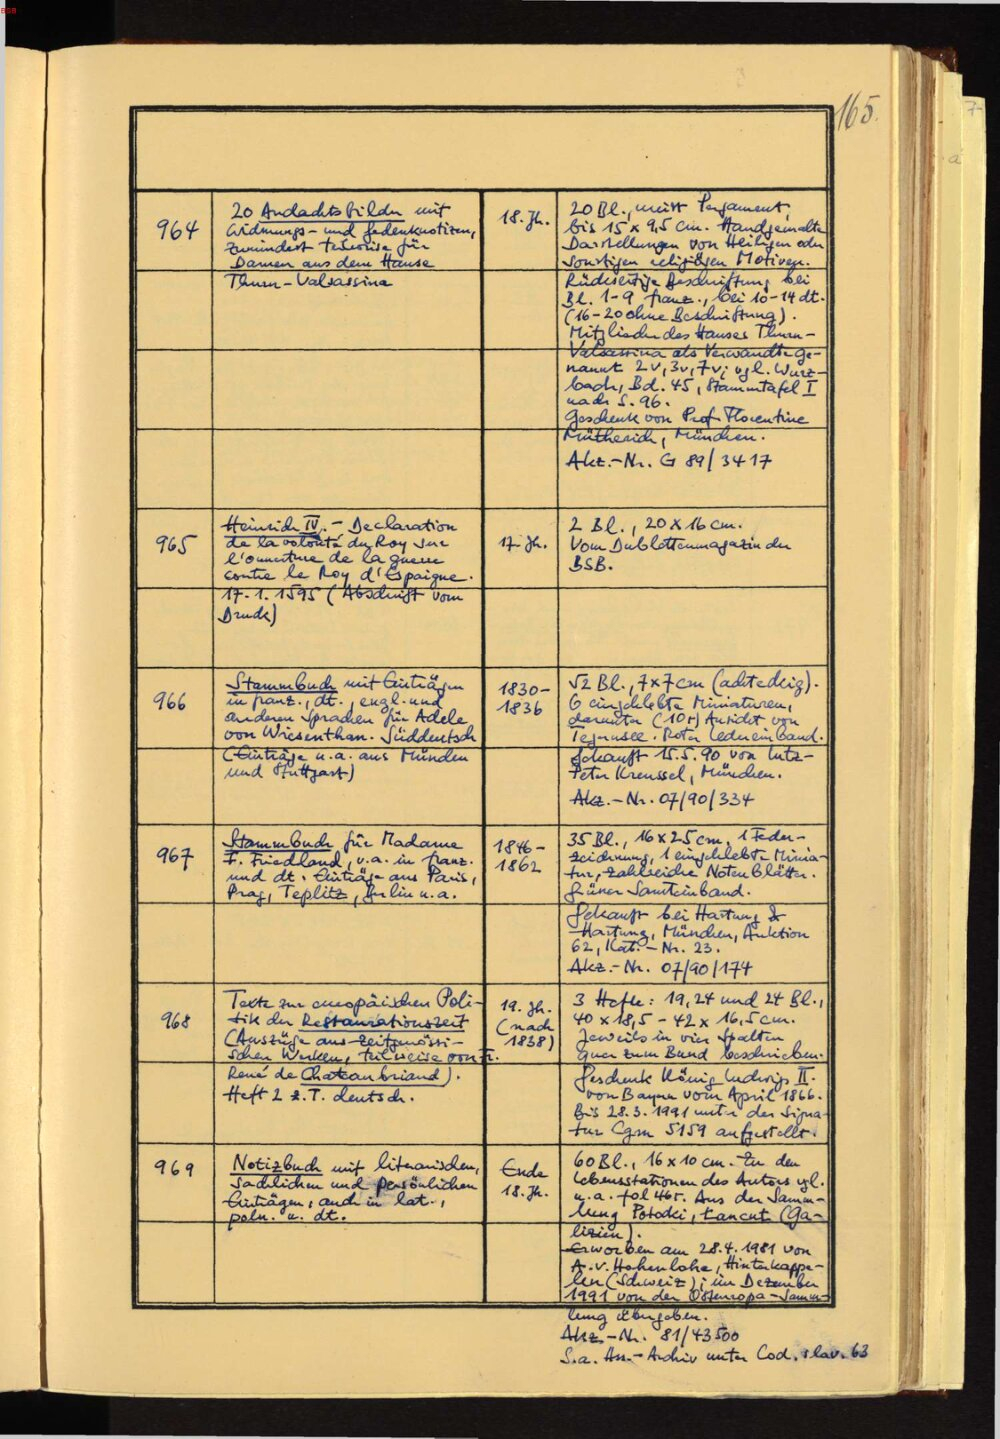 BSB
165.
964
20 Andachtsbilder mit
Widmungs- und Gedenknotizen,
zumindest teilweise für
Damen aus dem Hause
Thurn-Valsassina
18. Jh.
20 Bl., meist Pergament,
bis 15 x 9,5 cm. Handgemalte
Darstellungen von Heiligen oder
sonstigen religiösen Motiven.
Rückseitige Beschriftung bei
Bl. 1-9 franz., bei 10-14 dt.
(16-20 ohne Beschriftung).
Mitglieder des Hauses Thurn-
Valsassina als Verwandte ge-
nannt 2v, 3v, 7v; vgl. Wurz-
bach, Bd. 45, Stammtafel I
nach S. 96.
Geschenk von Prof. Florentine
Mütherich, München.
Akz.-Nr. G 89/3417
965
Heinrich IV. - Declaration
de la volonté du Roy sur
l'ouverture de la guerre
contre le Roy d'Espaigne.
17.1.1595 (Abschrift vom
Druck)
17. Jh.
2 Bl., 20 x 16 cm.
Vom Dublettenmagazin der
BSB.
966
Stammbuch mit Einträgen
in franz., dt., engl. und
anderen Sprachen für Adele
von Wiesenthan. Süddeutsch
(Einträge u.a. aus München
und Stuttgart)
1830-
1836
52 Bl., 7x7 cm (achteckig).
6 eingeklebte Miniaturen,
darunter (10r) Ansicht von
Tegernsee. Roter Ledereinband.
Gekauft 15.5.90 von Lutz-
Peter Kreussel, München.
Akz.-Nr. 07/90/334
967
Stammbuch für Madame
F. Friedland, u.a. in franz.
und dt. Einträge aus Paris,
Prag, Teplitz, Berlin u.a.
1846-
1862
35 Bl., 16 x 25 cm. 1 Feder-
zeichnung, 1 eingeklebte Minia-
tur, zahlreiche Notenblätter.
Grüner Samteinband.
Gekauft bei Hartung &
Hartung, München, Auktion
62, Kat.-Nr. 23.
Akz.-Nr. 07/90/174
968
Texte zur europäischen Poli-
tik der Restaurationszeit
(Auszüge aus zeitgenössi-
schen Werken, teilweise von Fr.
René de Chateaubriand).
Heft 2 z.T. deutsch.
19. Jh.
(nach
1838)
3 Hefte: 19, 24 und 24 Bl.,
40 x 18,5 - 42 x 16,5 cm.
Jeweils in vier Spalten
quer zum Bund beschrieben.
Geschenk König Ludwigs II.
von Bayern vom April 1866.
Bis 28.3.1991 unter der Signa-
tur Cgm 5159 aufgestellt.
969
Notizbuch mit literarischen,
sachlichen und persönlichen
Einträgen, auch in lat.,
poln. u. dt.
Ende
18. Jh.
60 Bl., 16 x 10 cm. Zu den
Lebensstationen des Autors vgl.
u.a. fol 46r. Aus der Samm-
lung Potocki, Łancut (Ga-
lizien).
Erworben am 28.4.1981 von
A.v. Hohenlohe, Hinterkappe-
len (Schweiz); im Dezember
1991 von der Osteuropa-Samm-
lung übergeben.
Akz.-Nr. 81/43500
S.a. Hss.-Archiv unter Cod. slav. 63